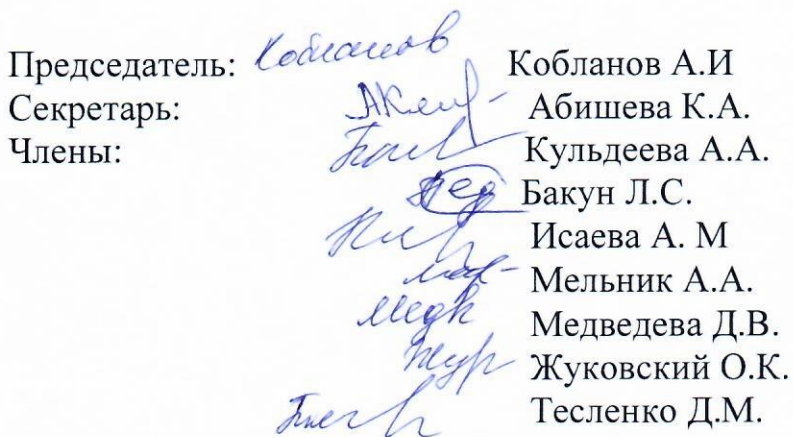 Председатель: Кобланов Кобланов А.И
Секретарь: Абишева К.А.
Члены: Кульдеева А.А.
Бакун Л.С.
Исаева А. М
Мельник А.А.
Медведева Д.В.
Жуковский О.К.
Тесленко Д.М.